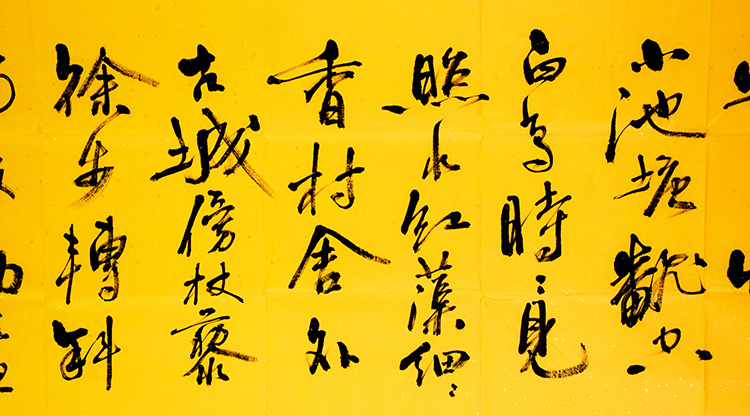 小池塘飜空
白鳥時〻見
照水紅蕖細〻
香村舍外
古城傍杖藜
徐步轉斜